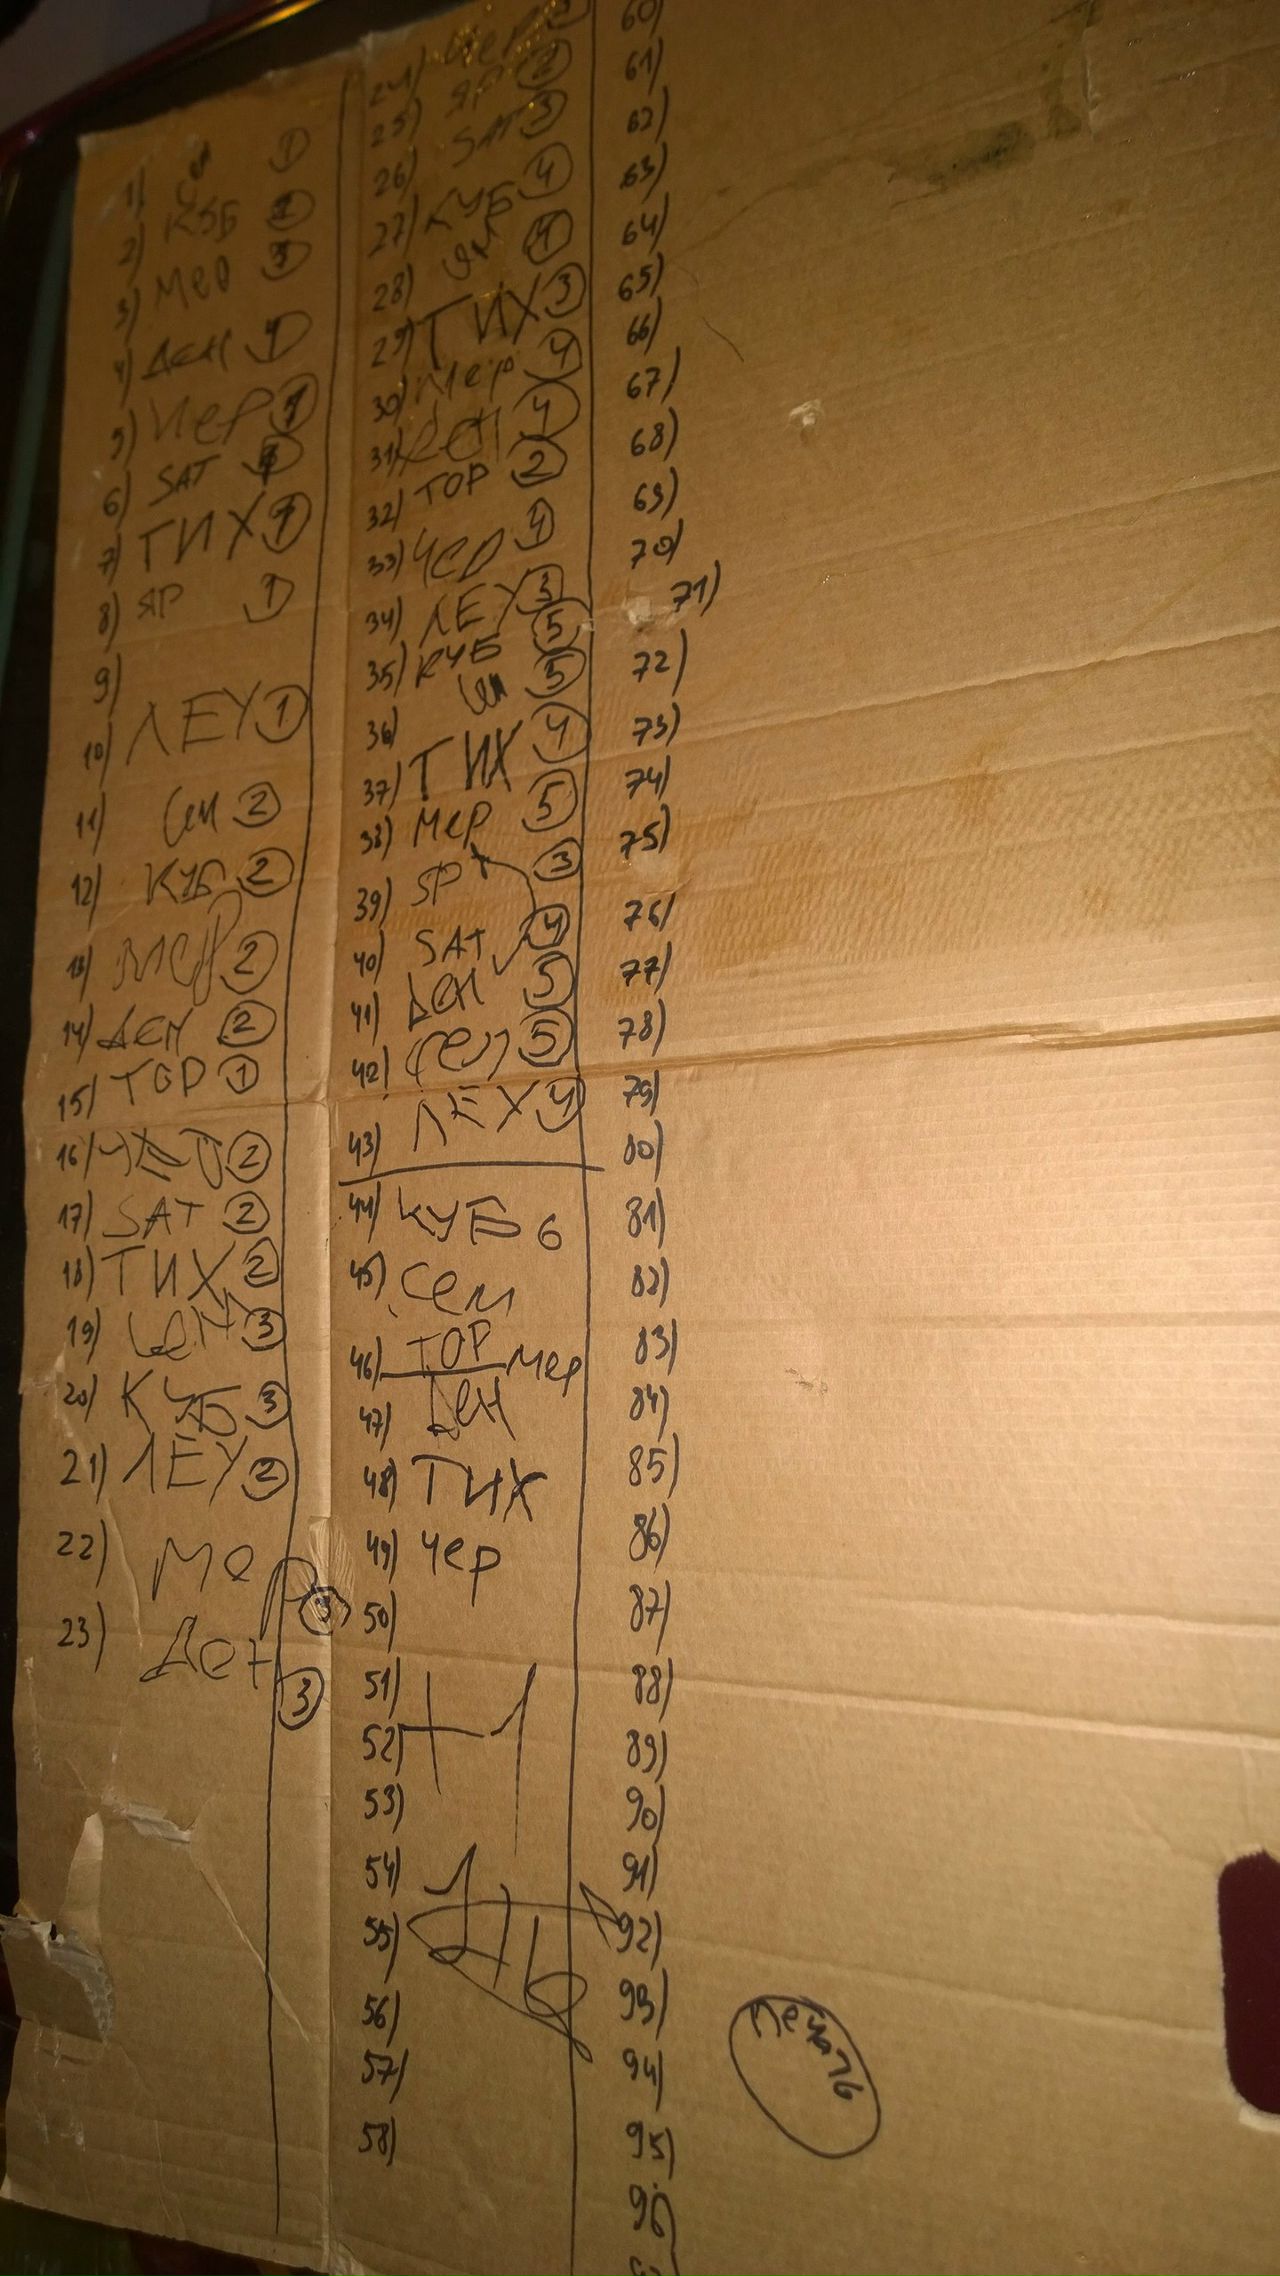 1) Сем 1
2) КУБ 2
3) мер 3
4) Ден 1
5) Чер 1
6) SAT 1
7) ТИХ 1
8) ЯР 1
9)
10) ЛЕУ 1
11) Сем 2
12) КУБ 2
13) мер 2
14) Ден 2
15) ТОР 1
16) 2
17) SAT 2
18) ТИХ 2
19) Сем 3
20) КУБ 3
21) ЛЕУ 2
22) Мер 3
23) Ден 3
24) Чер
25) ЯР 2
26) SAT 3
27) КУБ 4
28) 4
29) ТИХ 3
30) Мер 4
31) 4
32) ТОР 2
33) Чер 4
34) ЛЕУ 3
35) КУБ 5
36) Сем 5
37) ТИХ 4
38) мер 5
39) ЯР 3
40) SAT 4
41) Ден 5
42) 5
43) ЛЕХ 4
44) КУБ 6
45) Сем
46) ТОР мер
47) Ден
48) ТИХ
49) Чер
50)
51) +1
52)
53)
54)
55)
56)
57)
58)
60)
61)
62)
63)
64)
65)
66)
67)
68)
69)
70)
71)
72)
73)
74)
75)
76)
77)
78)
79)
80)
81)
82)
83)
84)
85)
86)
87)
88)
89)
90)
91)
92)
93)
94)
95)
96)
Печать